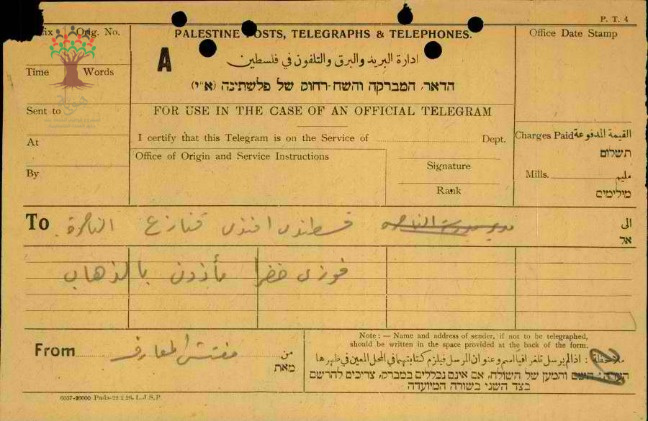 P. T. 4
Prefix Orig. No.
PALESTINE POSTS, TELEGRAPHS & TELEPHONES.
Office Date Stamp
A
ادارة البريد والبرق والتلفون في فلسطين
Time Words
הדאר, המברקה והשח-רחוק של פלשתינה (א״י)
Sent to
FOR USE IN THE CASE OF AN OFFICIAL TELEGRAM
At
I certify that this Telegram is on the Service of Dept.
Charges Paid القيمة المدفوعة
תשלום
Office of Origin and Service Instructions
Signature
By
Mills. مليم
מילימים
Rank
To قسطندي افندي قنازع الناصرة الى
אל
فوزي خضرا مأذون بالذهاب
Note : — Name and address of sender, if not to be telegraphed,
should be written in the space provided at the back of the form.
From مفتش المعارف من
מאת
ملاحظة : اذا لم يرسل تلغرافيا اسم وعنوان المرسل فيلزم كتابتهما في المحل المعين في ظهرها
השם והמען של השולח, אם אינם נכללים במברק, צריכים להרשם
בצד השני בשורה המיועדה